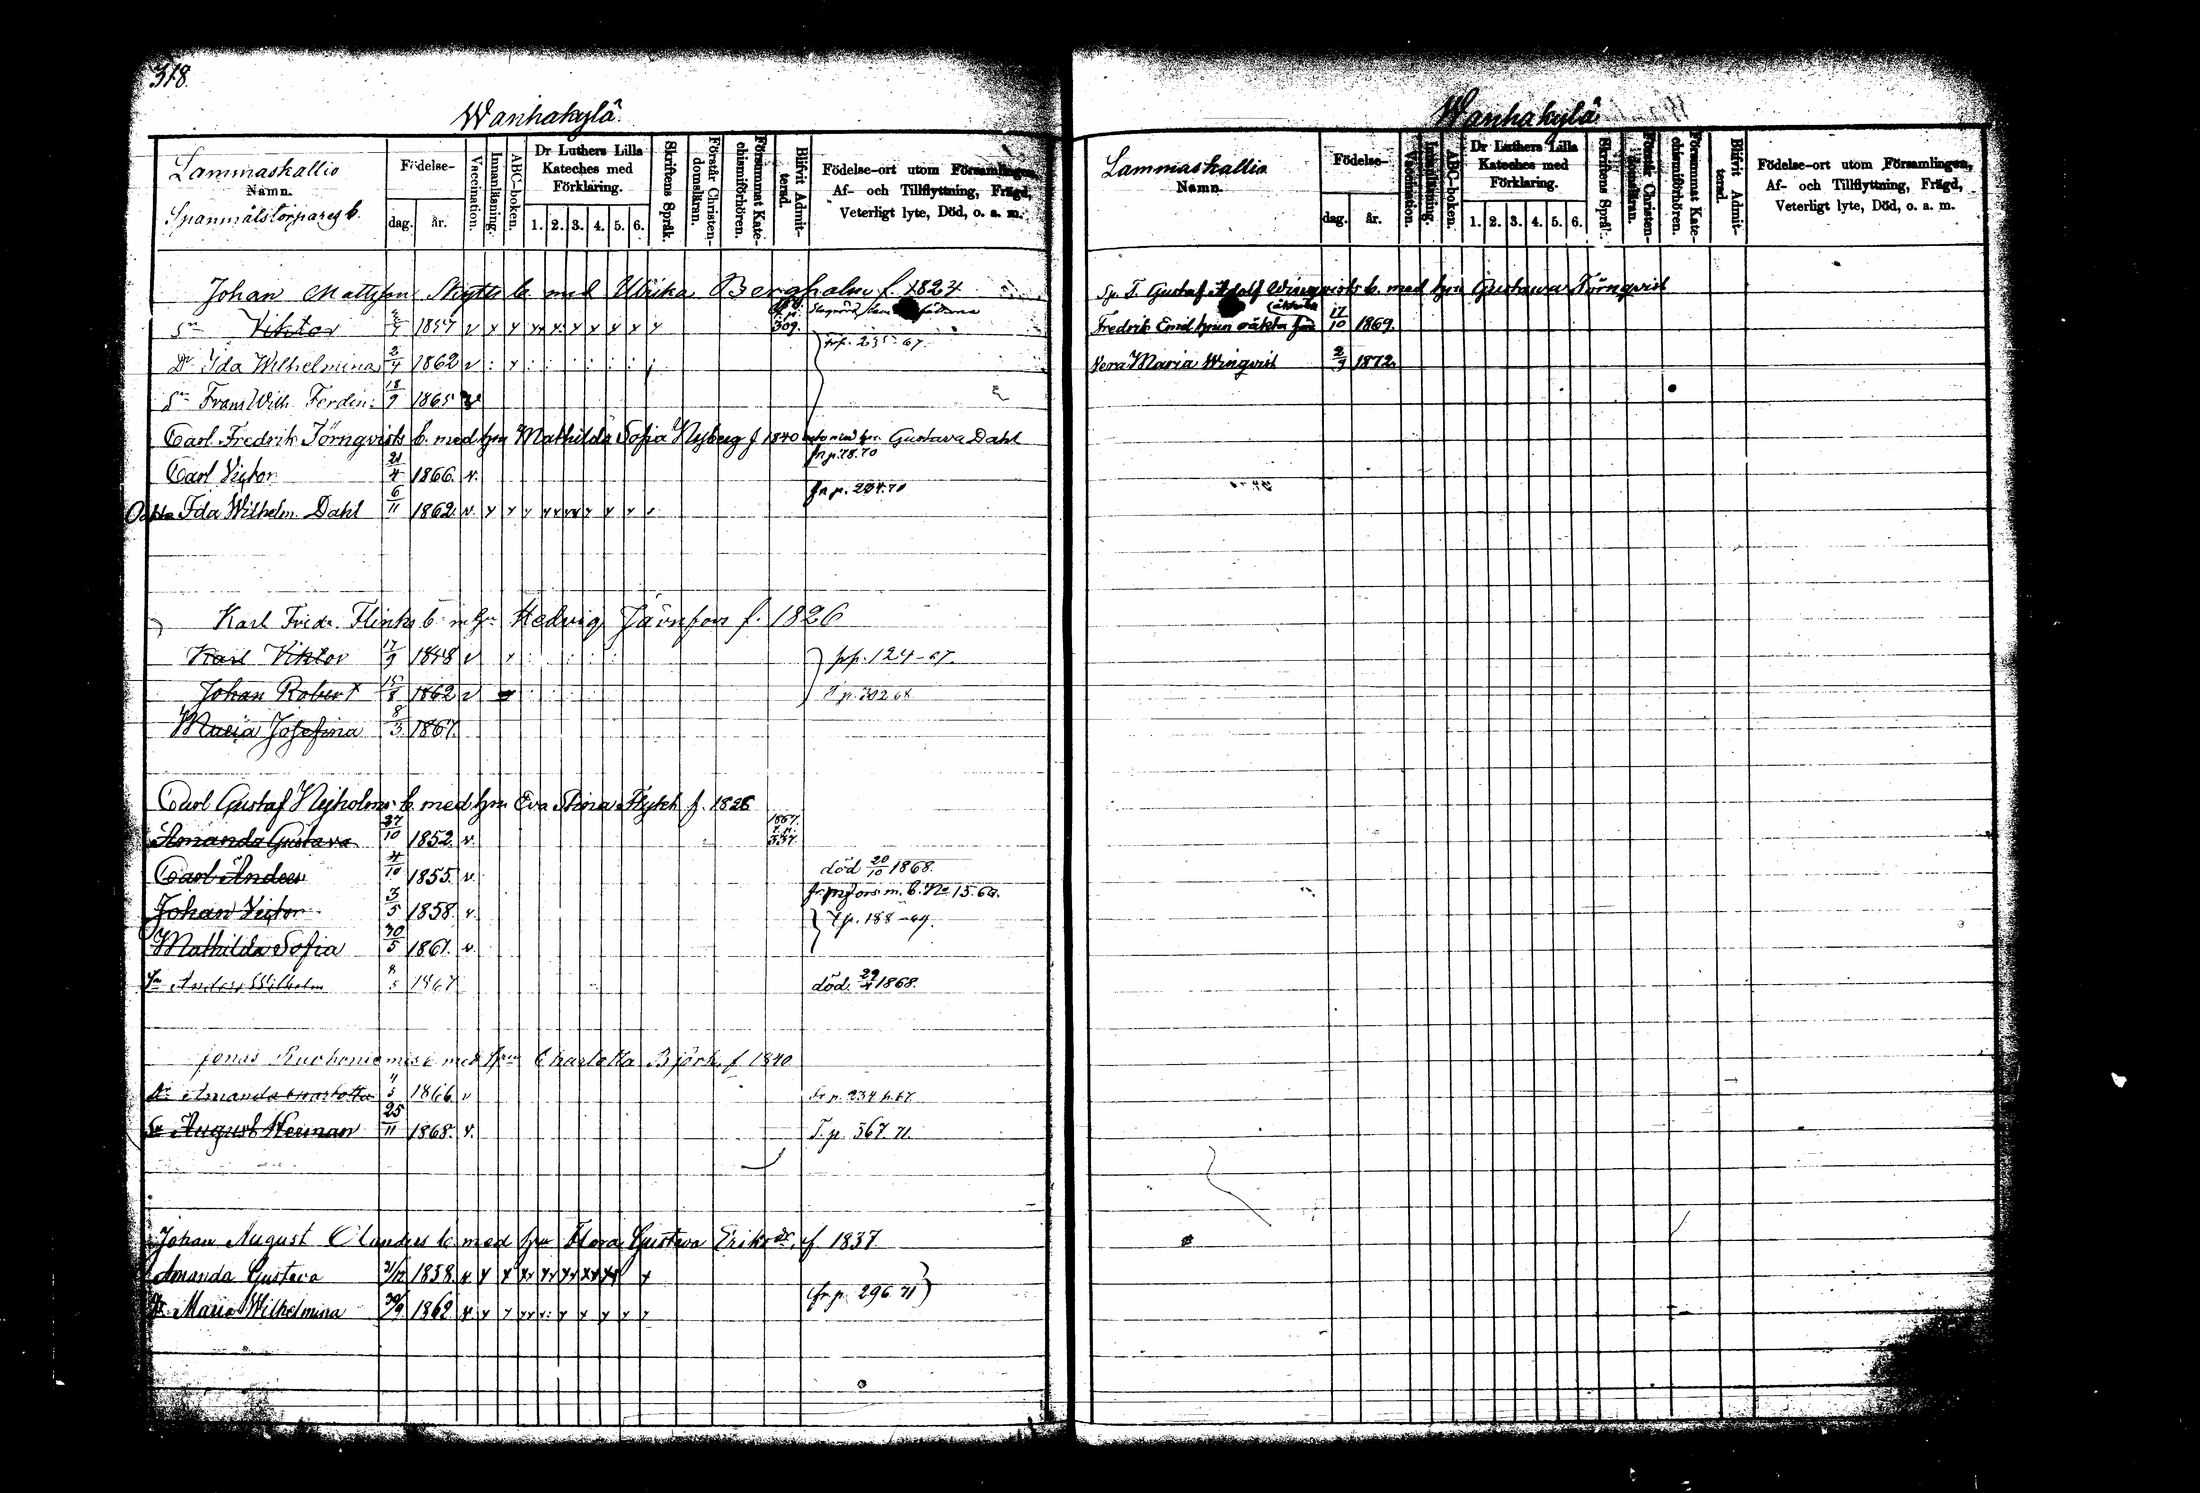 318.
Wanhakylä
Lammaskallio
Namn.
Spanmålstorpares b.
Födelse-
dag. år.
Vaccination.
Innanläsning.
ABC-boken.
Dr Luthers Lilla
Kateches med
Förklaring.
1. 2. 3. 4. 5. 6.
Skriftens Språk.
Förstår Christen-
domsläran.
Försummat Kate-
chismiförhören.
Blifvit Admit-
terad.
Födelse-ort utom Församlingen,
Af- och Tillflyttning, Frägd,
Veterligt lyte, Död, o. a. m.
Johan Mattsson b. med Ulrika Bergholm f. 1824
Sn Viktor 1857 v 309.
Dr Ida Wilhelmina 2/4 1862 v
Sn Frans Wilh. Ferdin. 18/9 1865 v
Carl Fredrik Törnqvists b. med hru Mathilda Sofia Nyberg f 1840 Gustava Dahl
Carl Victor 21/4 1866. v. fr p. 78.70
Ida Wilhelm. Dahl 6/11 1862 v fr p. 234.70
Karl Fredr. Flinks b. m. hru Hedvig Järnfors f. 1826
Karl Viktor 17/9 1848 v pp. 124-67.
Johan Robert 15/8 1862 v T p. 302 68
Maria Josefina 8/3 1867.
Carl Gustaf Nyholms b. med hru Eva Stina Flykt f. 1826
Amanda Gustava 27/10 1852 v. 1867. 337.
Carl Anders 4/10 1855. v. död 20/10 1868.
Johan Victor 3/5 1858. v. T p. 188-69.
Mathilda Sofia 30/5 1861. v.
Sn Anders Wilhelm 8/5 1867 död 29/4 1868.
Jonas b med hru Charlotta Björk f 1840
Dr Amanda Charlotta 1866 v fr p. 234 67
Sn August Herman 25/11 1868. v. T. p. 367. 71.
Johan August b. med hru Flora Gustava Eriksdr. f. 1837
Amanda Gustava 1858. v
Dr Maria Wilhelmina 30/9 1862 v (fr p. 296 71)
Wanhakylä
Lammaskallio
Namn.
Födelse-
dag. år.
Vaccination.
Innanläsning.
ABC-boken.
Dr Luthers Lilla
Kateches med
Förklaring.
1. 2. 3. 4. 5. 6.
Skriftens Språk.
Förstår Christen-
domsläran.
Försummat Kate-
chismiförhören.
Blifvit Admit-
terad.
Födelse-ort utom Församlingen,
Af- och Tillflyttning, Frägd,
Veterligt lyte, Död, o. a. m.
Sp. T. Gustaf Adolf Winqvists b. med hru Gustava Törnqvist
Fredrik Emil hruns oäkta 17/10 1869.
Vera Maria Winqvist 2/9 1872.